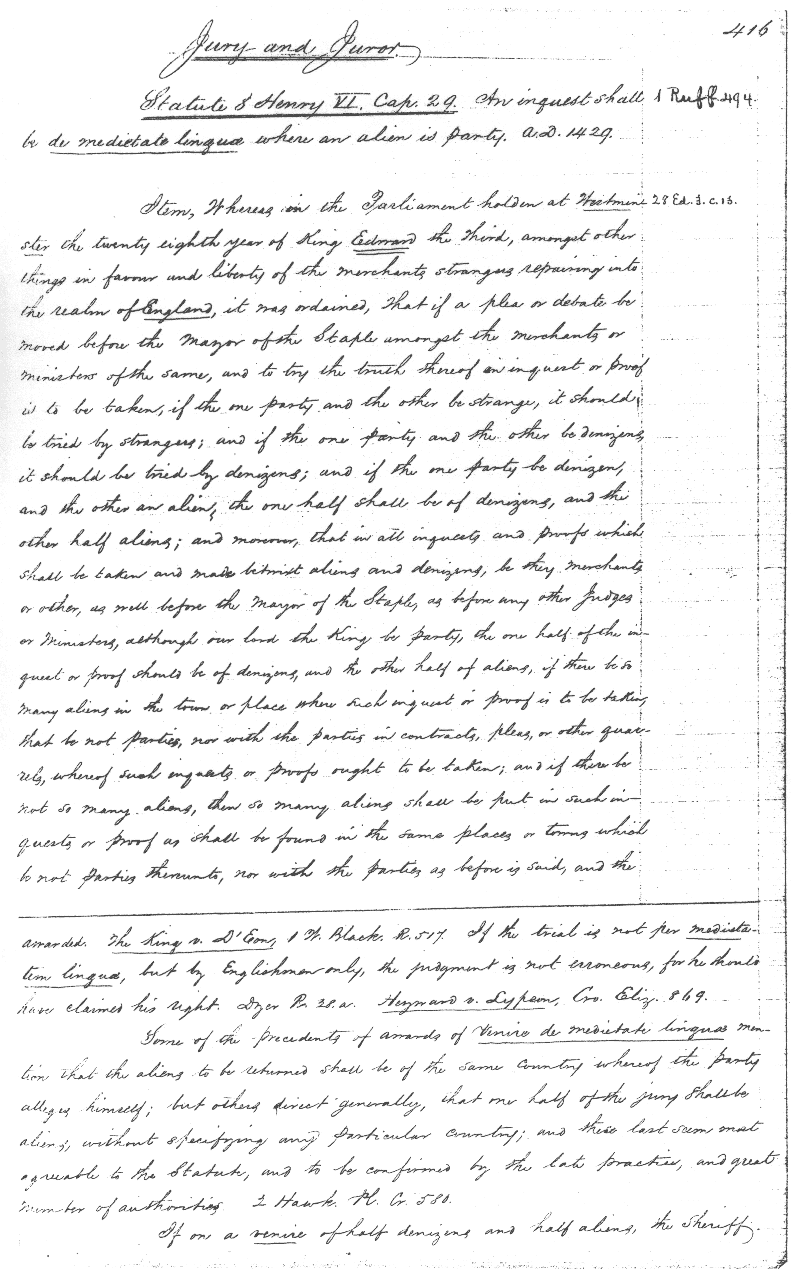 416
Jury and Juror.
Statute 8 Henry VI. Cap. 29. An inquest shall 1 Ruff. 494.
be de medietate linguæ where an alien is party. A.D. 1429.
Item, Whereas in the Parliament holden at Westmin- 28 Ed. 3. c. 13.
ster the twenty eighth year of King Edward the Third, amongst other
things in favour and liberty of the merchants strangers repairing into
the realm of England, it was ordained, that if a plea or debate be
moved before the Mayor of the Staple amongst the merchants or
ministers of the same, and to try the truth thereof an inquest or proof
is to be taken, if the one party and the other be strange, it should
be tried by strangers; and if the one party and the other be denizens,
it should be tried by denizens; and if the one party be denizen,
and the other an alien, the one half shall be of denizens, and the
other half aliens; and moreover, that in all inquests and proofs which
shall be taken and made betwixt aliens and denizens, be they merchants
or other, as well before the Mayor of the Staple, as before any other Judges
or Ministers, although our lord the King be party, the one half of the in-
quest or proof should be of denizens, and the other half of aliens, if there be so
many aliens in the town or place where such inquest or proof is to be taken,
that be not parties, nor with the parties in contracts, pleas, or other quar-
rels, whereof such inquests or proofs ought to be taken; and if there be
not so many aliens, then so many aliens shall be put in such in-
quests or proof as shall be found in the same places or towns which
be not parties thereunto, nor with the parties as before is said, and the
awarded. The King v. D'Eon, 1 W. Black. R. 517. If the trial is not per medieta-
tem linguæ, but by Englishmen only, the judgment is not erroneous, for he should
have claimed his right. Dyer R. 28.a. Heynward v. Lypson, Cro. Eliz. 869.
Some of the precedents of awards of Venire de medietate linguæ men-
tion that the aliens to be returned shall be of the same Country whereof the party
alleges himself; but others direct generally, that one half of the jury shall be
aliens, without specifying any particular country; and these last seem most
agreeable to the Statute, and to be confirmed by the late practice, and great
number of authorities. 2 Hawk. Pl. Cr. 580.
If on a venire of half denizens and half aliens, the Sheriff